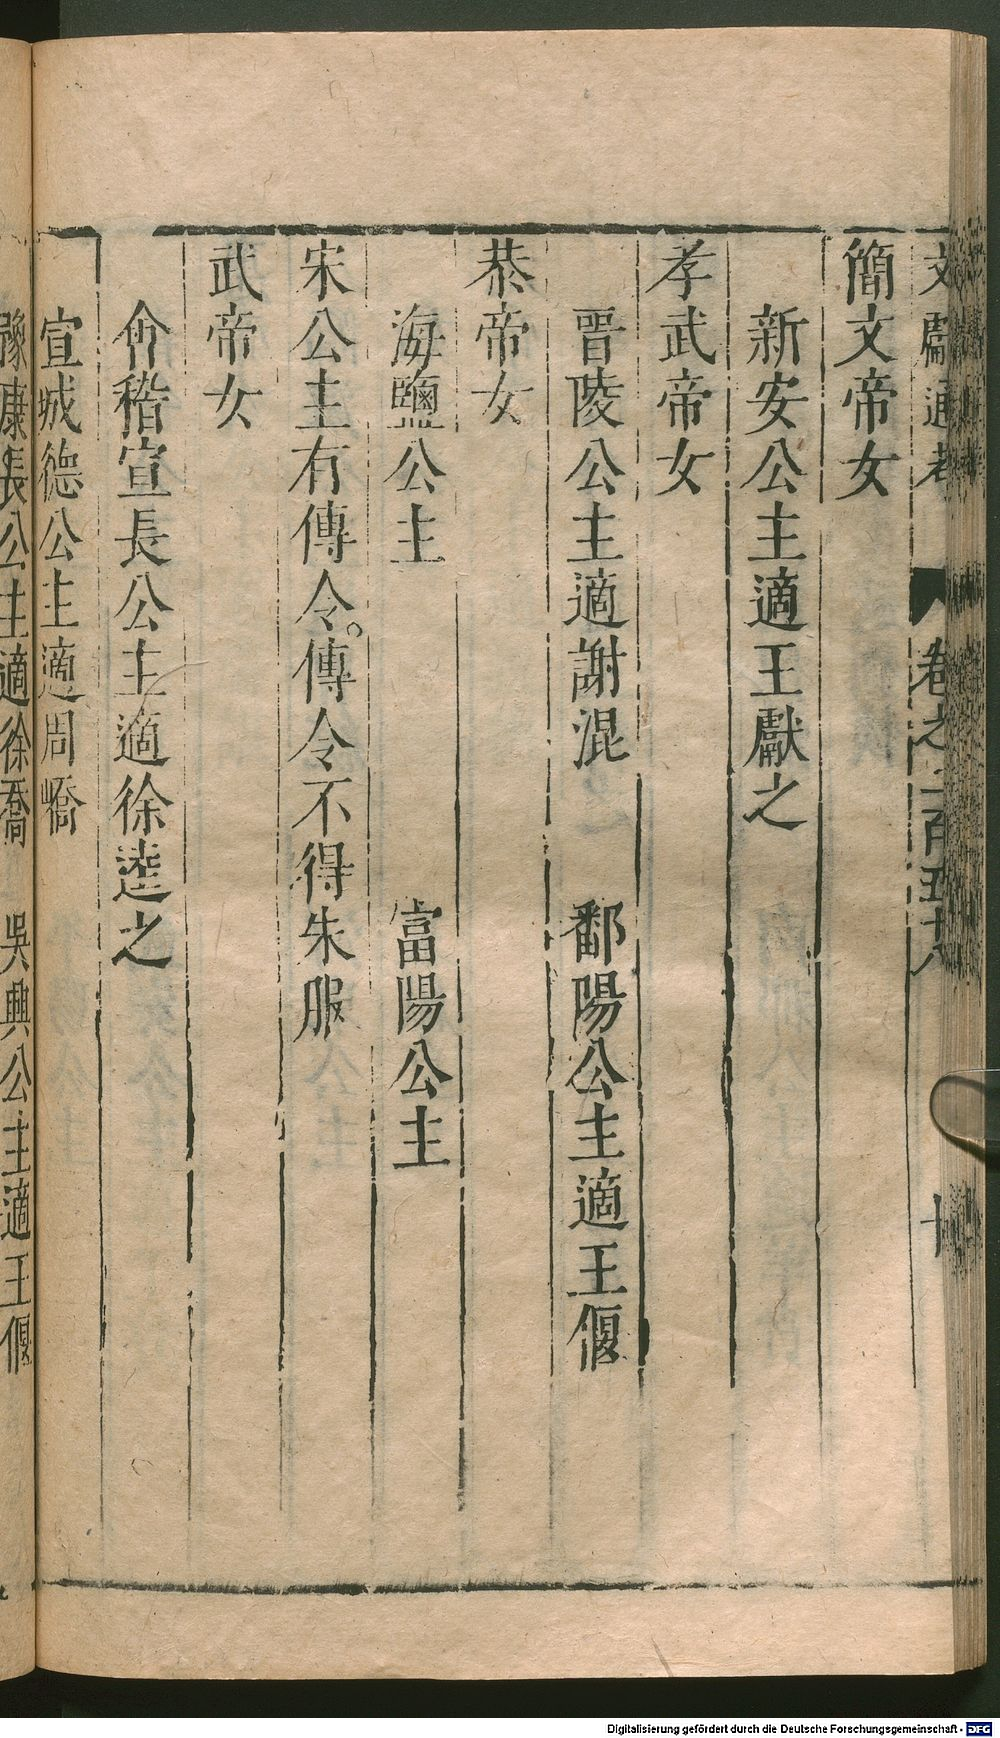 文獻通考 卷之二百五十八 十
簡文帝女
新安公主適王獻之
孝武帝女
晉陵公主適謝混 鄱陽公主適王偃
恭帝女
海鹽公主 富陽公主
宋公主有傳令。傳令不得朱服
武帝女
會稽宣長公主適徐逵之
宣城德公主適周嶠
豫康長公主適徐喬 吳興公主適王偃
Digitalisierung gefördert durch die Deutsche Forschungsgemeinschaft - DFG